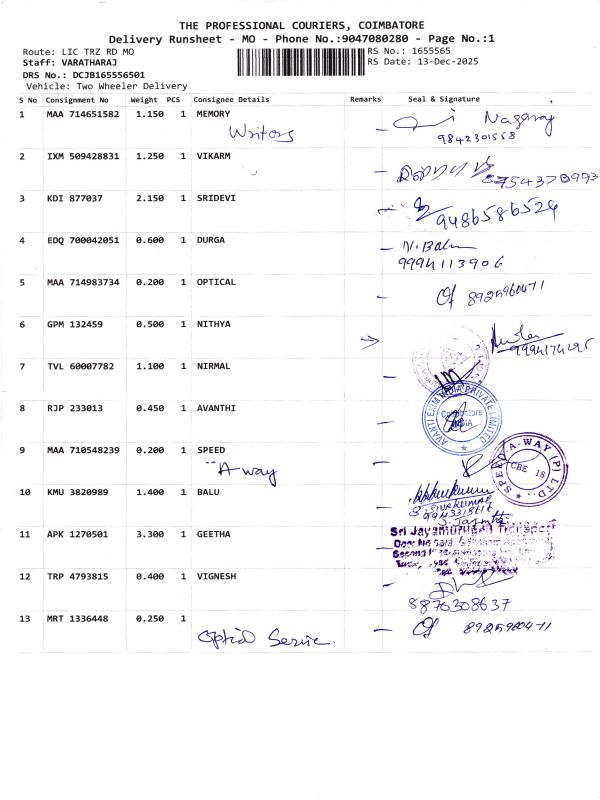 THE PROFESSIONAL COURIERS, COIMBATORE
Delivery Runsheet - MO - Phone No.:9047080280 - Page No.:1
Route: LIC TRZ RD MO
RS No.: 1655565
Staff: VARATHARAJ
RS Date: 13-Dec-2025
DRS No.: DCJB165556501
Vehicle: Two Wheeler Delivery
S No Consignment No Weight PCS Consignee Details Remarks Seal & Signature
1 MAA 714651582 1.150 1 MEMORY Nagaraj
Writors 9842301558
2 IXM 509428831 1.250 1 VIKARM
8754378993
3 KDI 877037 2.150 1 SRIDEVI
9486586524
4 EDQ 700042051 0.600 1 DURGA N. Balu
9994113906
5 MAA 714983734 0.200 1 OPTICAL
8925960471
6 GPM 132459 0.500 1 NITHYA
9994174295
7 TVL 60007782 1.100 1 NIRMAL
8 RJP 233013 0.450 1 AVANTHI
AVANTI EXIM INDIA PRIVATE LIMITED
Coimbatore
INDIA
9 MAA 710548239 0.200 1 SPEED
A way
SPEED-A-WAY (P) LTD.
CBE 18
10 KMU 3820989 1.400 1 BALU
S. SIVAKUMAR
11 APK 1270501 3.300 1 GEETHA
Sri Jayamurugan Transport
12 TRP 4793815 0.400 1 VIGNESH
8870308637
13 MRT 1336448 0.250 1
Optical Servic. 8925960471